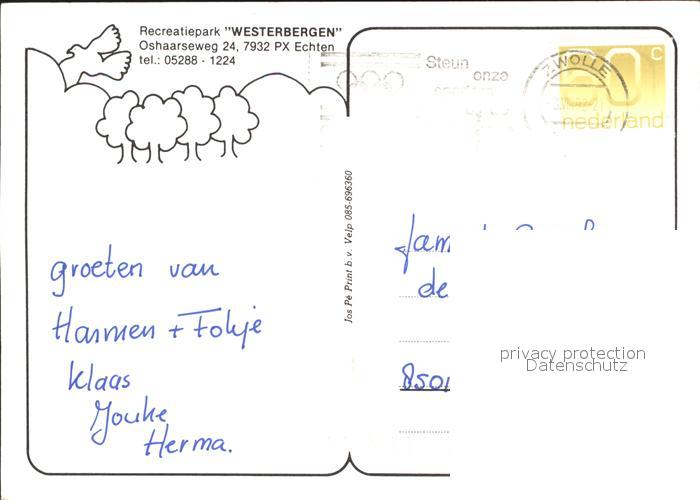 Recreatiepark "WESTERBERGEN"
Oshaarseweg 24, 7932 PX Echten
tel.: 05288 - 1224
Steun
onze
ZWOLLE
60 c
nederland
Jos Pé Print b.v. Velp 085-696360
groeten van
Harmen + Fokje
Klaas
Jouke
Herma.
Fam
de
8501
privacy protection
Datenschutz